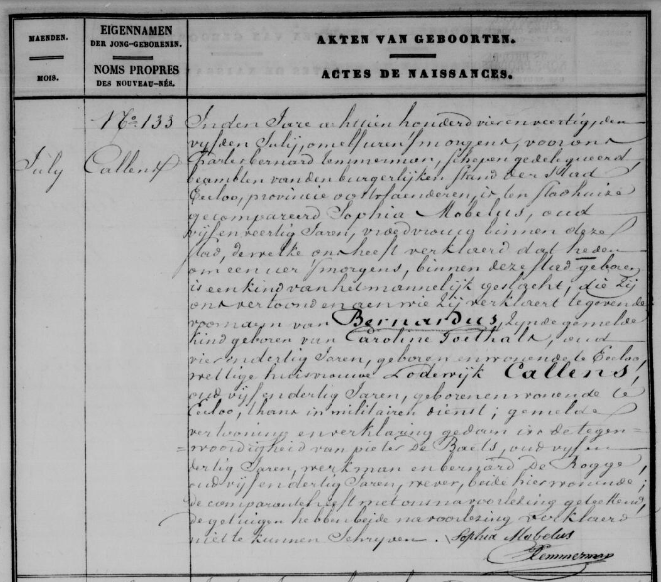 MAENDEN.
MOIS.
EIGENNAMEN
DER JONG-GEBORENEN.
NOMS PROPRES
DES NOUVEAU-NÉS.
AKTEN VAN GEBOORTEN.
ACTES DE NAISSANCES.
July
No 133
Callens
In den Jare achttien honderd vier en veertig, den
vyfden July, om elf uren 'smorgens, voor ons
Charles bernard Temmerman, schepen gedelegueerd,
beambten van den burgerlyken stand der stad
Eecloo, provincie oostvlaenderen, is ten stadhuize
gecompareerd Sophia Mobelus, oud
vyf en veertig Jaren, vroedvrouw binnen deze
stad, dewelke ons heeft verklaerd dat heden
om een uer 'smorgens, binnen deze stad geboren
is een kind van het mannelyk geslacht, die zy
ons vertoond en aen wie zy verklaert te geven de
voornaem van Bernardus, zynde gemelde
kind geboren van Caroline Goethals, oud
vier en dertig Jaren, geboren en wonende te Eecloo,
wettige huisvrouwe Lodewyk Callens,
oud vyf en dertig Jaren, geboren en wonende te
Eecloo, thans in militairen dienst; gemelde
vertooning en verklaring gedaen in de tegen-
woordigheid van pieter De Baets, oud vyf en
dertig Jaren, werkman en bernard De Rogge,
oud vyf en dertig Jaren, wever, beide hier wonende;
de comparante heeft met ons na voorlezing geteekend,
de getuigen hebben beide na voorlezing verklaerd
niet te kunnen schryven. Sophia Mobelus
Temmerman